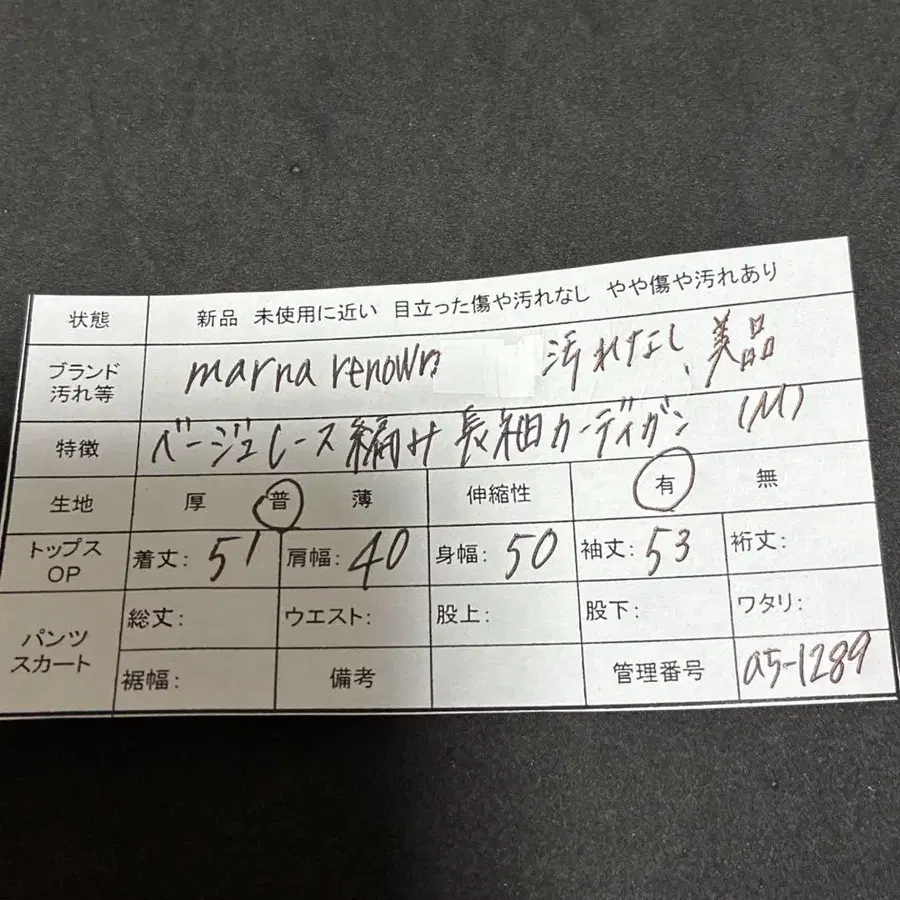 状態 新品 未使用に近い 目立った傷や汚れなし やや傷や汚れあり
ブランド 汚れ等 marna renown 汚れなし、美品
特徴 ベージュレース編み長袖カーディガン (M)
生地 厚 普 薄 伸縮性 有 無
トップス OP 着丈: 51 肩幅: 40 身幅: 50 袖丈: 53 裄丈:
パンツ スカート 総丈: ウエスト: 股上: 股下: ワタリ:
裾幅: 備考 管理番号 a5-1289